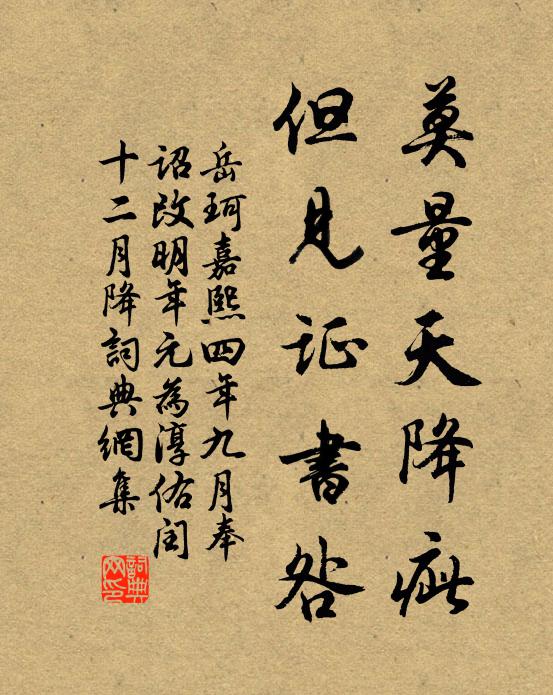 莫量天降疵
但見证書咎
岳珂嘉熙四年九月奉
诏改明年元為淳佑閏
十二月降詞典網集
詞典网印